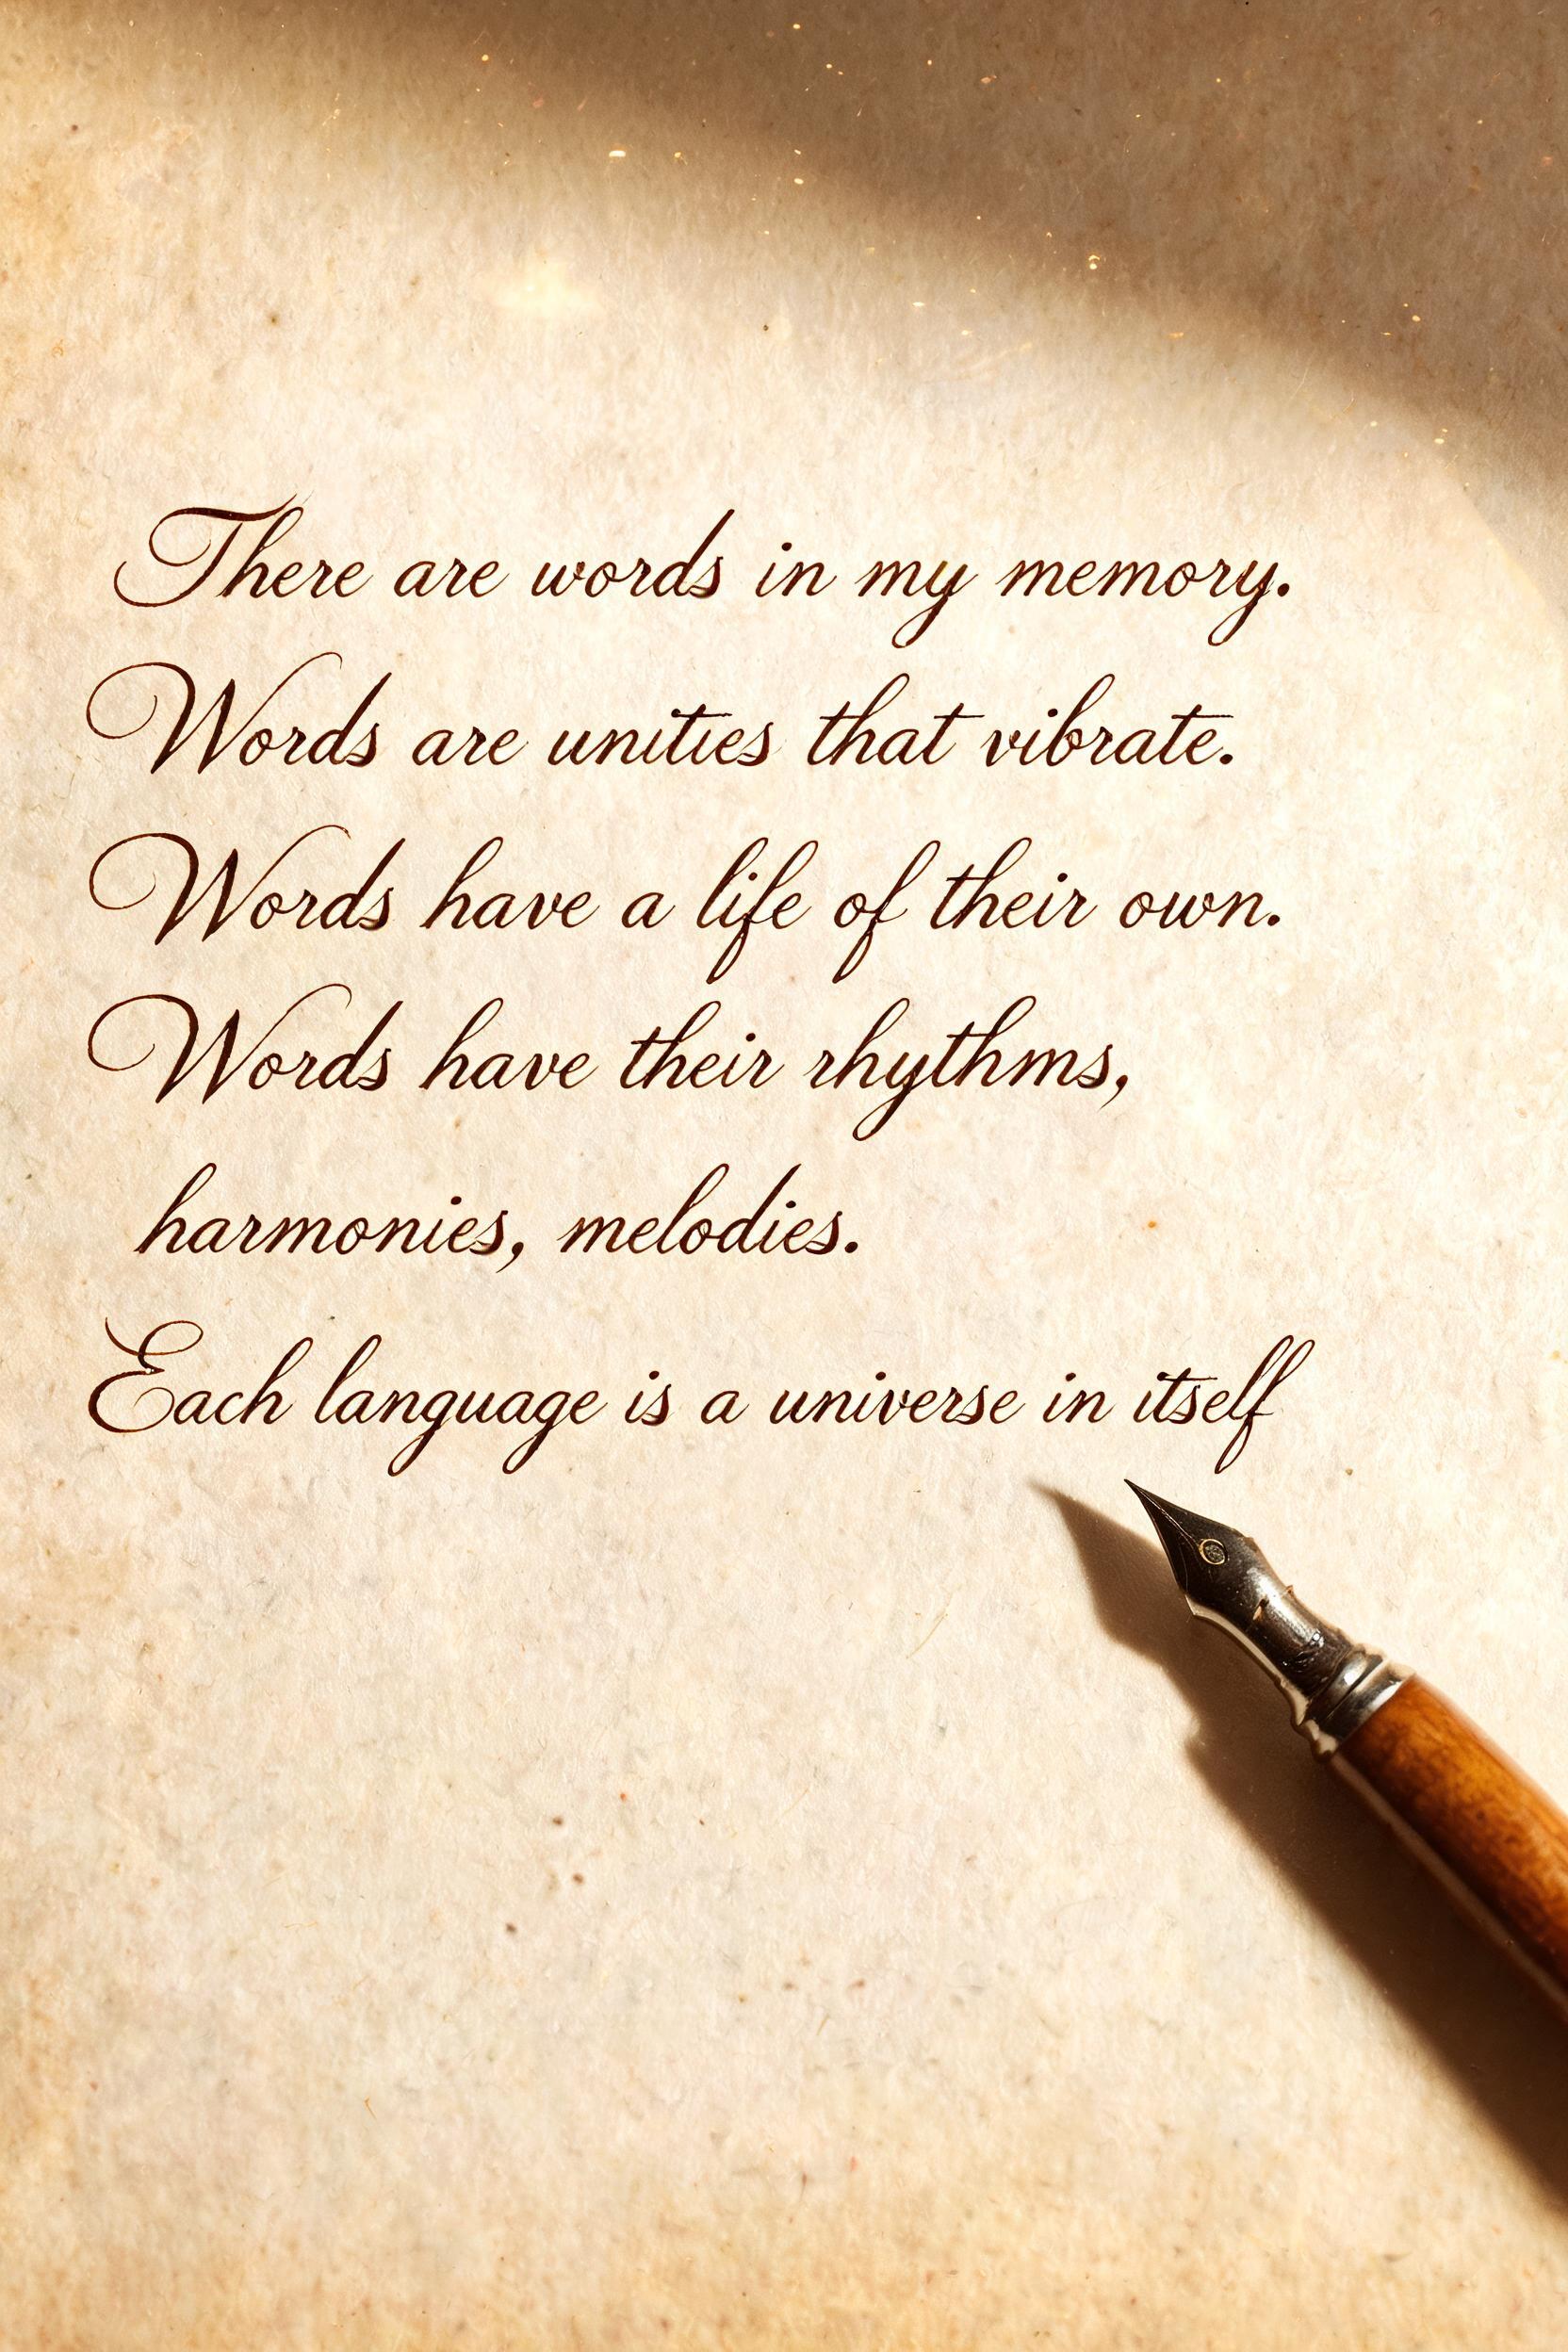 There are words in my memory.
Words are unities that vibrate.
Words have a life of their own.
Words have their rhythms,
harmonies, melodies.
Each language is a universe in itself